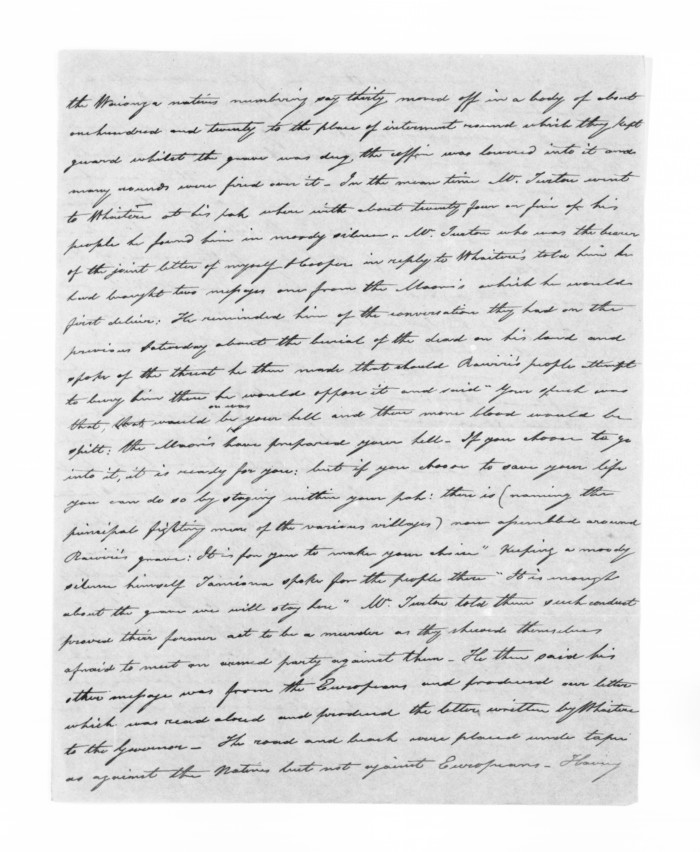 the Waionga natives numbering say thirty moved off in a body of about
one hundred and twenty to the place of interment round which they kept
guard whilst the grave was dug, the coffin was lowered into it and
many rounds were fired over it – In the mean time Mr. Turton went
to Whaitere at his pah where with about twenty four or five of his
people he found him in moody silence. Mr. Turton who was the bearer
of the joint letter of myself & Cooper in reply to Whaitere's told him he
had brought two messages one from the Maoris which he would
first deliver: He reminded him of the conversation they had on the
previous Saturday about the burial of the dead on his land and
spoke of the threat he then made that should Rawiri's people attempt
to bury him there he would oppose it and said "Your speech was
that, that would be your hell and there more blood would be
spilt: the Maoris have prepared your hell – If you choose to go
into it, it is ready for you: but if you choose to save your life
you can do so by staying within your pah: there is (naming the
principal fighting men of the various villages) now assembled around
Rawiri's grave: It is for you to make your choice" Keeping a moody
silence himself Tamiona spoke for the people there "It is enough
about the grave we will stay here" Mr. Turton told them such conduct
proved their former act to be a murder as they shewed themselves
afraid to meet an armed party against them – He then said his
other message was from the Europeans and produced our letter
which was read aloud and produced the letter written by Whaitere
to the Governor – The road and beach were placed under tapu
as against the Natives but not against Europeans – Having